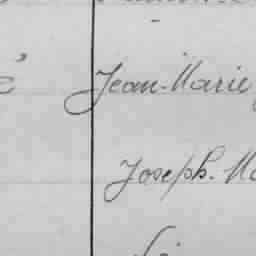 Jean-Marie
Joseph. Ma